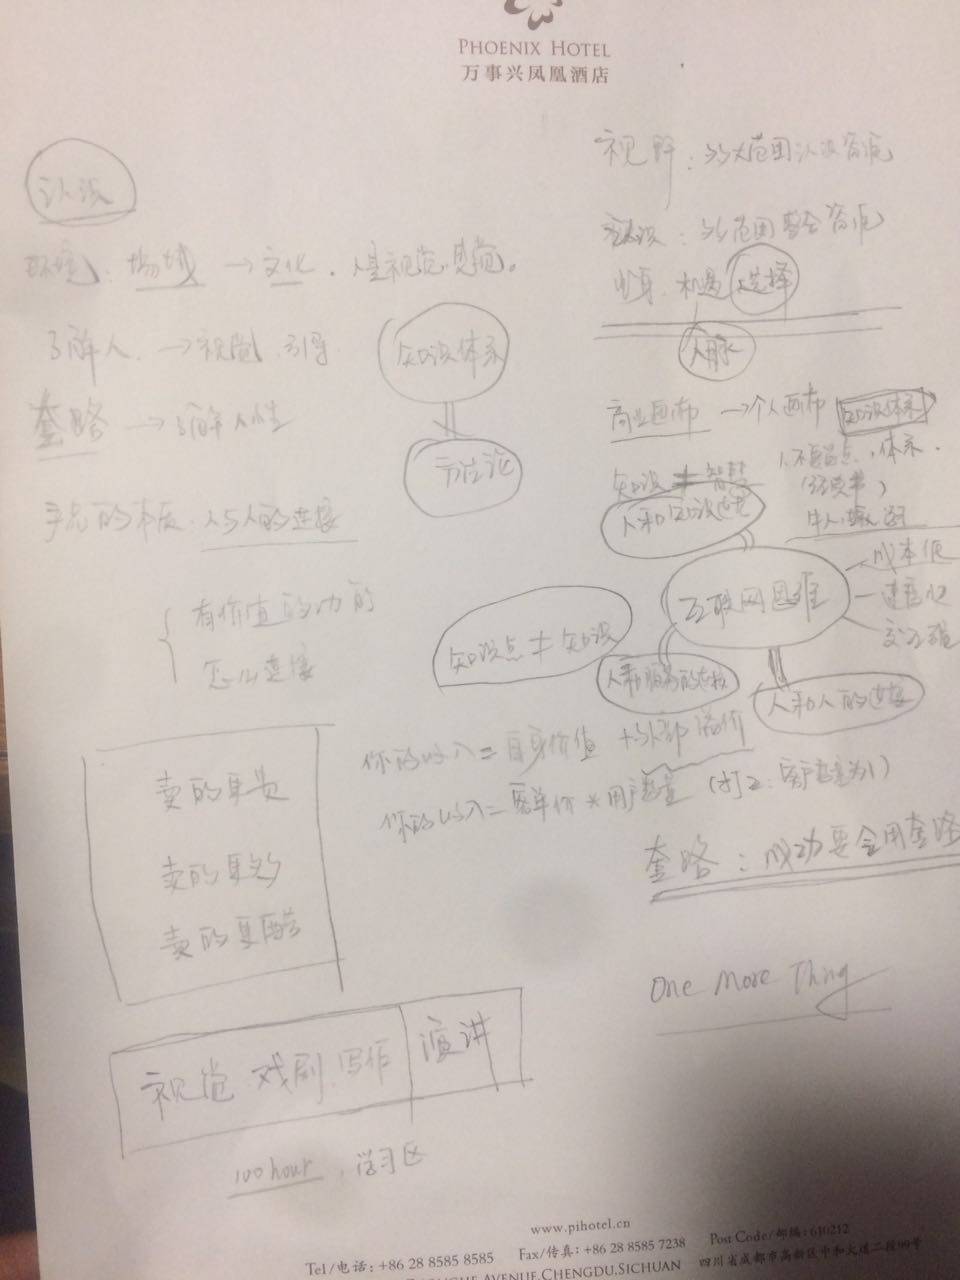 PHOENIX HOTEL
万事兴凤凰酒店
认识
环境、场域 → 文化、人是视觉、感觉。
了解人、→ 视觉、引导
套路 → 了解人性
知识体系
方法论
的本质、人与人的连接
有价值的
怎么连接
卖的更贵
卖的更多
卖的更酷
视觉、戏剧、写作
演讲
100 hour、学习区
视野：大范围认识资源
范围整合资源
出身、机遇、选择
人脉
商业画布 → 个人画布
知识体系
知识 ≠ 智慧
体系、
人和知识连接
互联网思维
成本低
人和服务的连接
人和人的连接
知识点 ≠ 知识
你的收入 = 自身价值 + 外部溢价
你的收入 = 客单价 * 用户数量（打工：客户数量为1）
套路：成功要会用套路
One More Thing
www.pihotel.cn
Tel/电话：+86 28 8585 8585 Fax/传真：+86 28 8585 7238 Post Code/邮编：610212
AVENUE, CHENGDU, SICHUAN 四川省成都市高新区中和大道二段99号